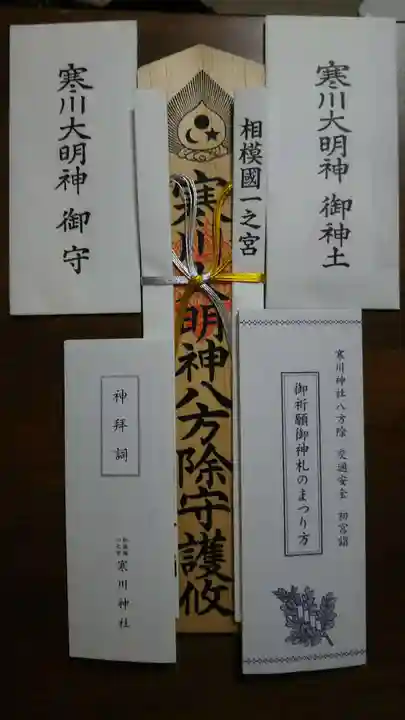 寒川大明神 御神土
相模國一之宮
寒川大明神八方除守護攸
寒川大明神 御守
寒川神社八方除 交通安全 初宮詣
御祈願御神札のまつり方
神拜詞
寒川神社